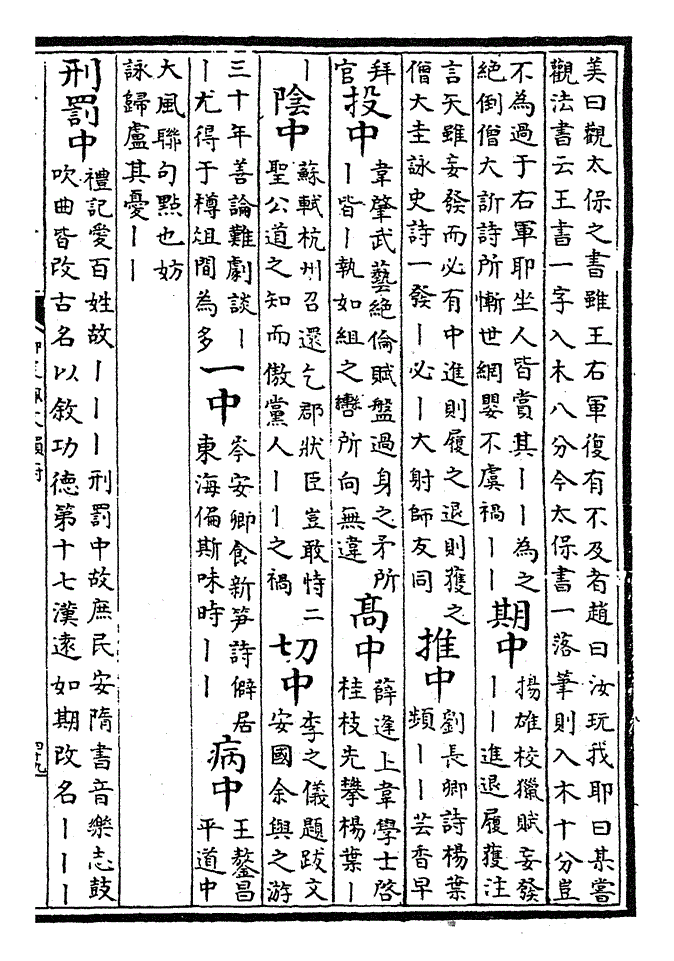 美曰觀太保之書雖王右軍復有不及者趙曰汝玩我耶曰某嘗
觀法書云王書一字入木八分今太保書一落筆則入木十分豈
不為過于右軍耶坐人皆賞其丨丨為之
絕倒僧大訢詩所慚世網嬰不虞禍丨丨
期中
揚雄校獵賦妄發
丨丨進退履獲注
言矢雖妄發而必有中進則履之退則獲之
僧大圭詠史詩一發丨必丨大射師友同
推中
劉長卿詩楊葉
頻丨丨芸香早
拜
官
投中
韋肇武藝絕倫賦盤過身之矛所
丨皆丨執如組之轡所向無違
高中
薛逢上韋學士啓
桂枝先攀楊葉丨
丨
陰中
蘇軾杭州召還乞郡狀臣豈敢恃二
聖公道之知而傲黨人丨丨之禍
切中
李之儀題跋文
安國余與之游
三十年善論難劇談丨
丨尤得于樽俎間為多
一中
岑安卿食新笋詩僻居
東海偏斯味時丨丨
病中
王鏊昌
平道中
大風聯句點也妨
詠歸盧其憂丨丨
刑罰中
禮記愛百姓故丨丨丨刑罰中故庶民安隋書音樂志鼓
吹曲皆改古名以敘功德第十七漢遠如期改名丨丨丨